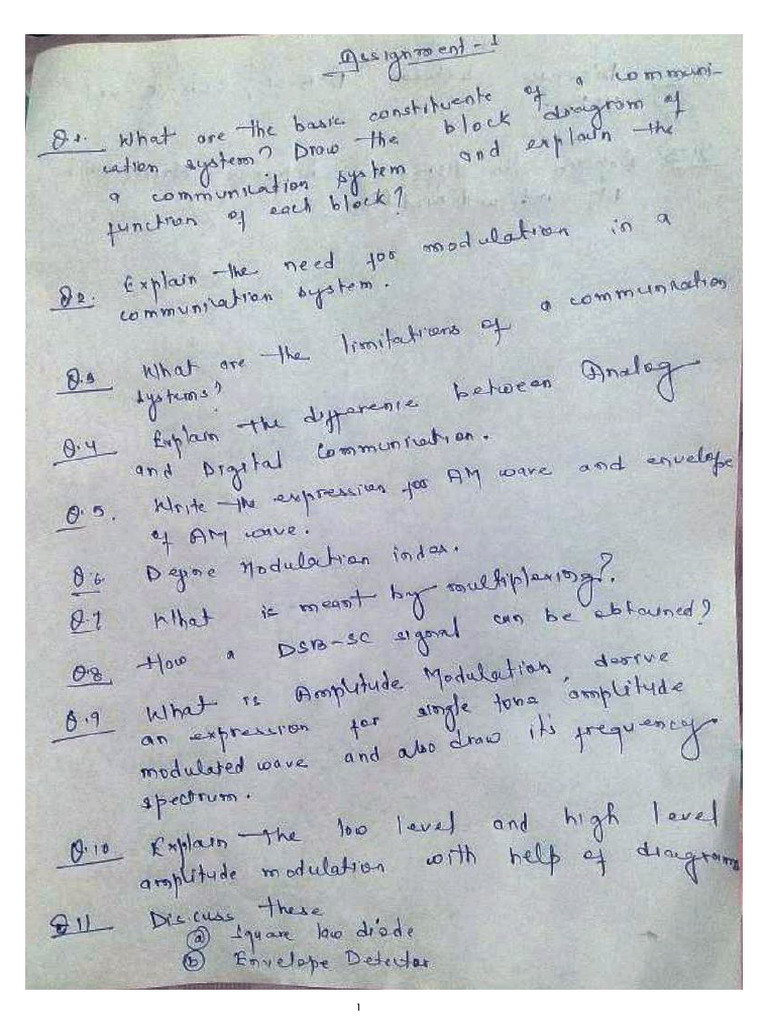 Assignment - 1
Q1. What are the basic constituents of a communi-
cation system? Draw the block diagram of
a communication system and explain the
function of each block?
Q2. Explain the need for modulation in a
communication system.
Q.3 What are the limitations of a communication
systems?
Q.4 Explain the difference between Analog
and Digital Communication.
Q.5. Write the expression for AM wave and envelope
of AM wave.
Q.6 Define Modulation index.
Q.7 What is meant by multiplexing?.
Q.8 How a DSB-SC signal can be obtained?
Q.9 What is Amplitude Modulation, derive
an expression for single tone amplitude
modulated wave and also draw it's frequency
spectrum.
Q.10 Explain the low level and high level
amplitude modulation with help of diagrams
Q11 Discuss these
(a) Square law diode
(b) Envelope Detector
1